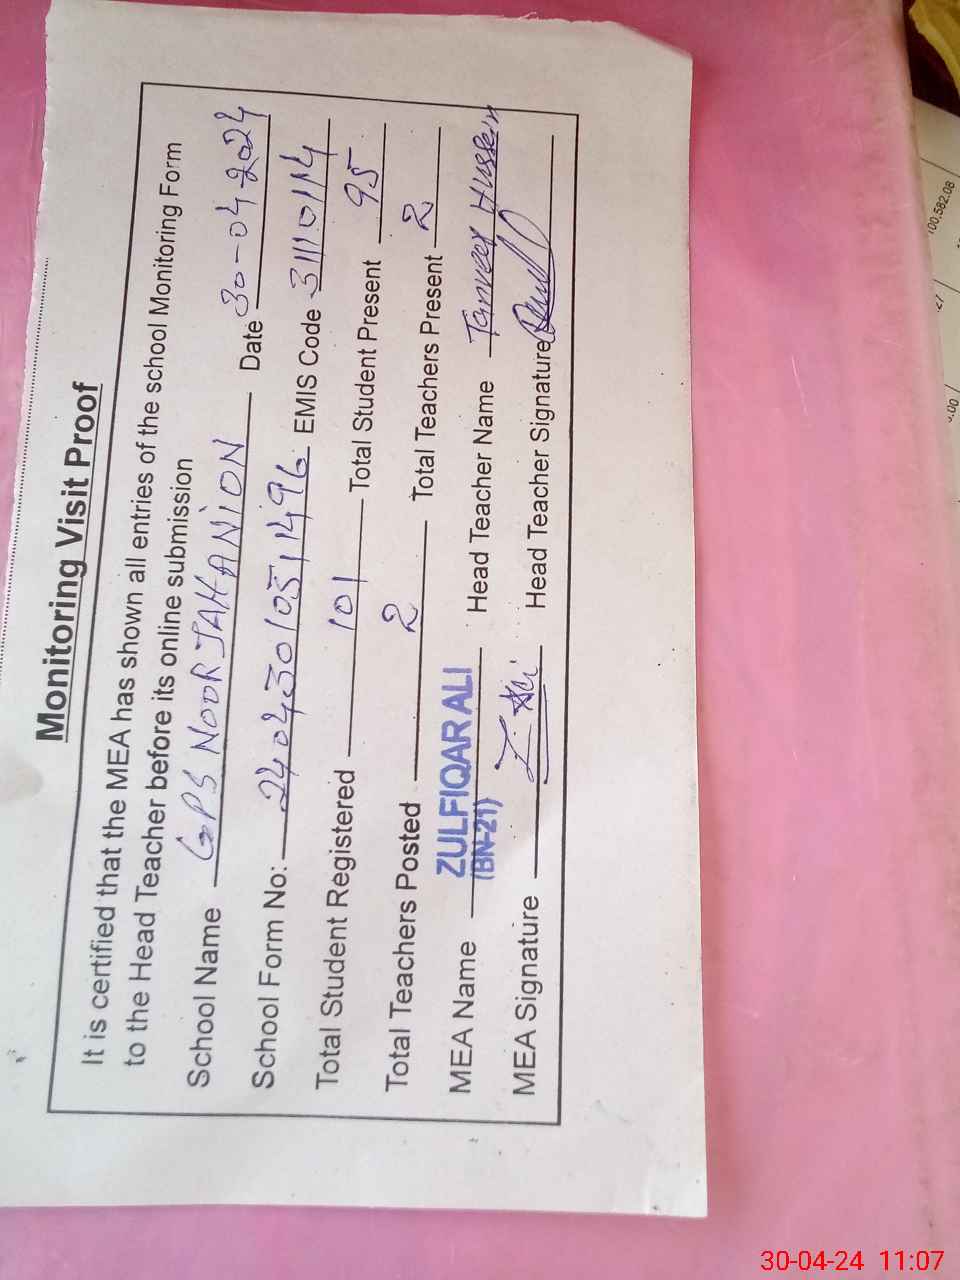 Monitoring Visit Proof
It is certified that the MEA has shown all entries of the school Monitoring Form
to the Head Teacher before its online submission
School Name GPS NOOR JAHANION Date 30-04-2024
School Form No: 2404301051496 EMIS Code 31110114
Total Student Registered 101 Total Student Present 95
Total Teachers Posted 2 Total Teachers Present 2
MEA Name ZULFIQAR ALI (BN-21) Head Teacher Name Tanveer Hussein
MEA Signature Z. Ali Head Teacher Signature
100,582.08
.27
30-04-24 11:07